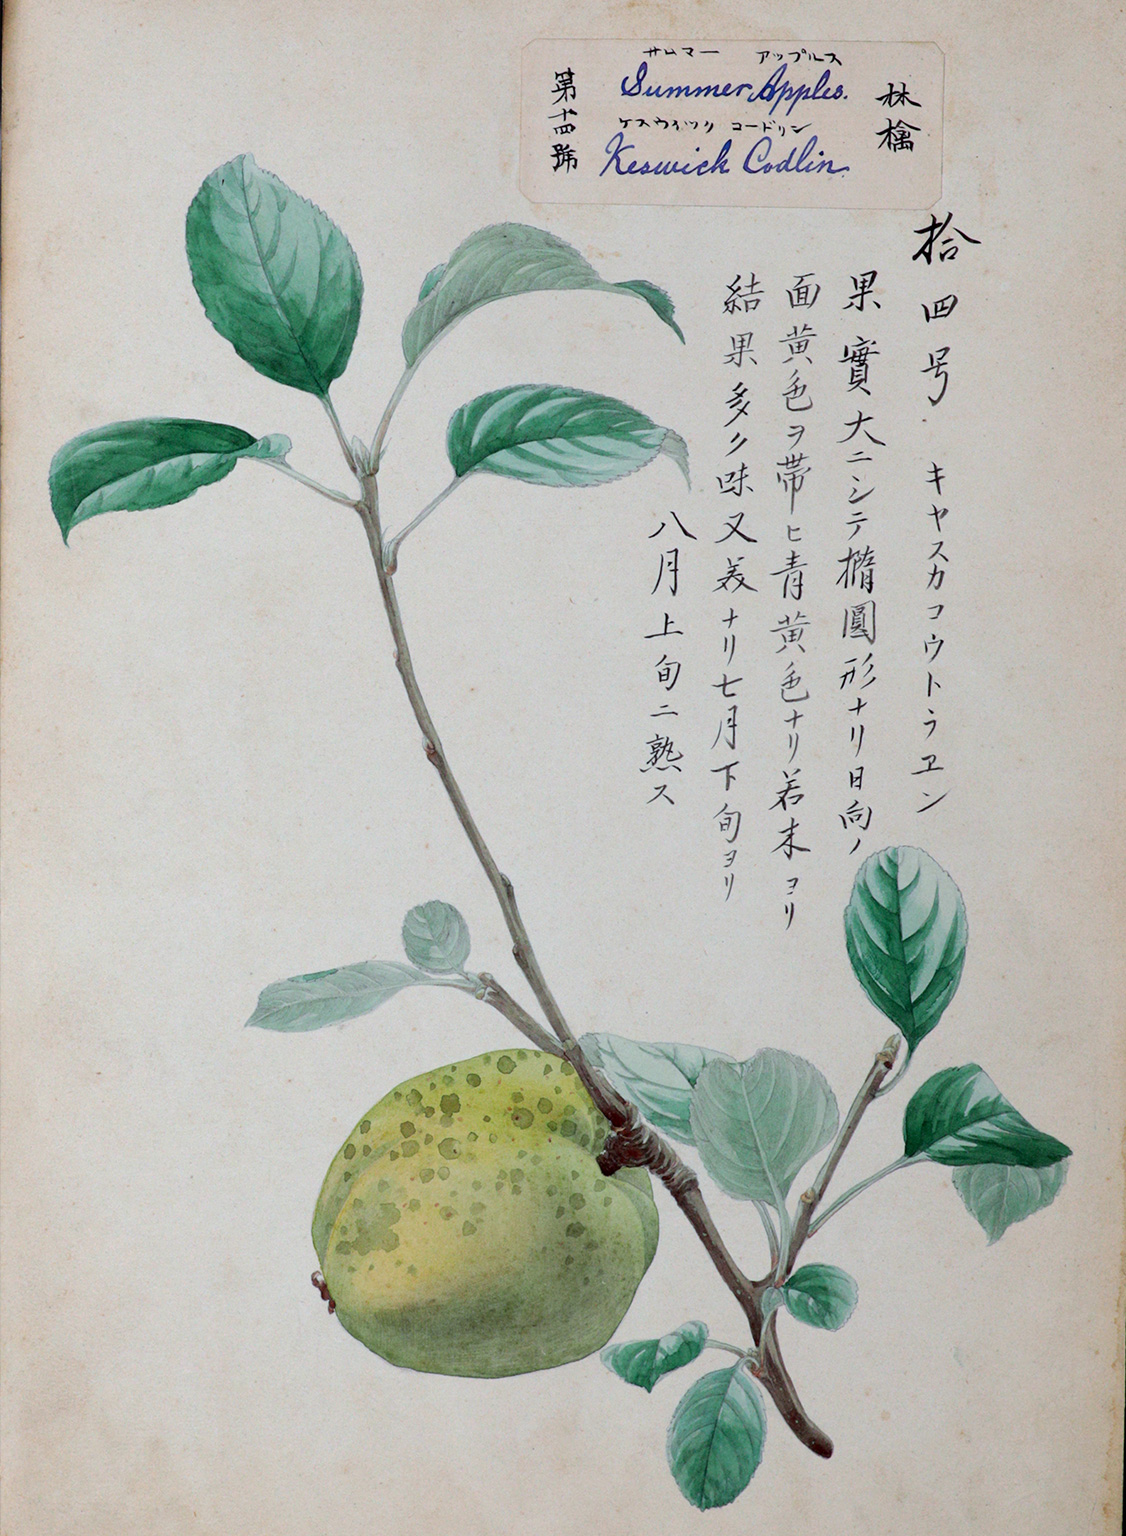 林檎
サムマー アップルス
Summer Apples.
ケスウィック コードリン
Keswick Codlin.
第十四號
拾四号. キヤスカコウトラヱン
果實大ニシテ橢圓形ナリ日向ノ
面黄色ヲ帯ヒ青黄色ナリ若末ヨリ
結果多ク味又美ナリ七月下旬ヨリ
八月上旬ニ熟ス